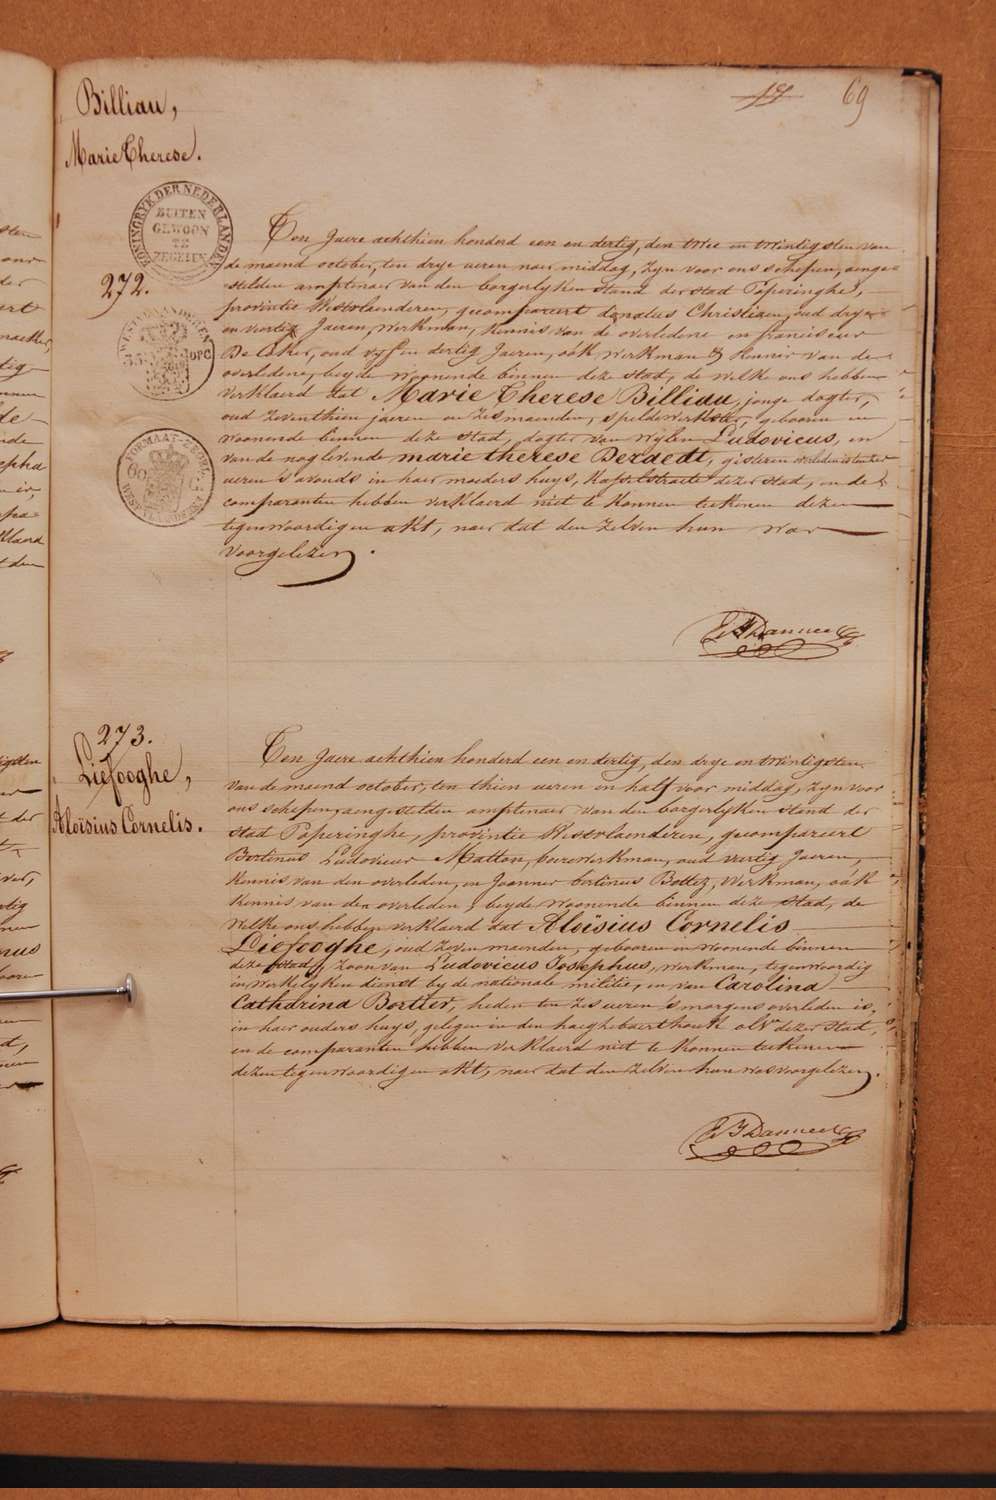 69
Billiau,
Marie Therese.
KONINGRYK DER NEDERLANDEN
BUITEN
GEWOON
TE
ZEGELEN
272.
Ten Jaere achthien honderd een en dertig, den twee en twintigsten van
de maend october, ten drye ueren naer middag, zyn voor ons schepen, aenge-
stelden amptenaer van den borgerlyken stand der stad Poperinghe,
provintie Westvlaenderen, gecompareert donatus Christiaen, oud drye
en veertig Jaeren, werkman, kennis van de overledene en franciscus
De Coker, oud vyf en dertig Jaeren, oók werkman & kennis van de
overledene, beyde woonende binnen deze stad, de welke ons hebben
verklaerd dat Marie Therese Billiau, jonge dogter,
oud zeventhien jaeren en zes maenden, speldewerkster, geboren en
woonende binnen deze stad, dogter van wylen Ludovicus, en
van de noglevende marie therese Deraedt, gisteren overleden is ten
ueren s'avonds in haer moeders huys, Kasselstraete dezer stad, en de
comparanten hebben verklaerd niet te konnen teekenen dezen
tegenwoordigen akt, naer dat den zelven hun was
voorgelezen.
273.
Liefooghe,
Aloïsius Cornelis.
Ten Jaere achthien honderd een en dertig, den drye en twintigsten
van de maend october, ten thien ueren en half voor middag, zyn voor
ons schepen, aengestelden amptenaer van den borgerlyken stand der
stad Poperinghe, provintie Westvlaenderen, gecompareert
Bertinus Ludovicus Matton, werkman, oud veertig Jaeren,
kennis van den overleden, en Joannes bertinus Bottez, werkman, oók
kennis van den overleden, beyde woonende binnen deze stad, de
welke ons hebben verklaerd dat Aloïsius Cornelis
Liefooghe, oud zeven maenden, gebooren en woonende binnen
deze stad, zoon van Ludovicus Josephus, werkman, tegenwoordig
in werkelyken dienst by de nationale militie, en van Carolina
Catharina Bertier, heden ten zes ueren 's morgens overleden is,
in haer ouders huys, gelegen in den dezer stad,
en de comparanten hebben verklaerd niet te konnen teekenen
dezen tegenwoordigen akt, naer dat den zelven hun was voorgelezen.